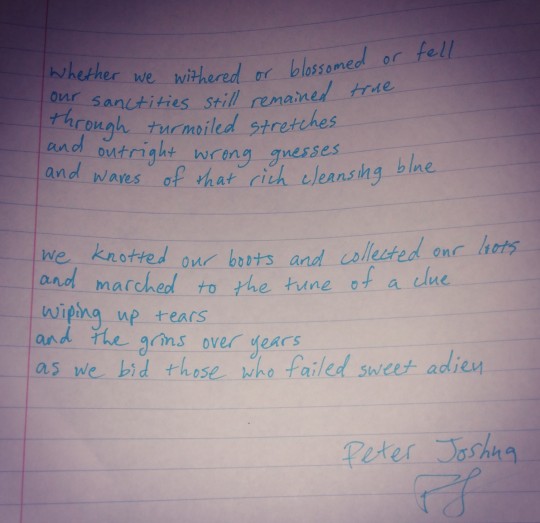 whether we withered or blossomed or fell
our sanctities still remained true
through turmoiled stretches
and outright wrong guesses
and waves of that rich cleansing blue
we knotted our boots and collected our loots
and marched to the tune of a clue
wiping up tears
and the grins over years
as we bid those who failed sweet adieu
Peter Joshua
PJ